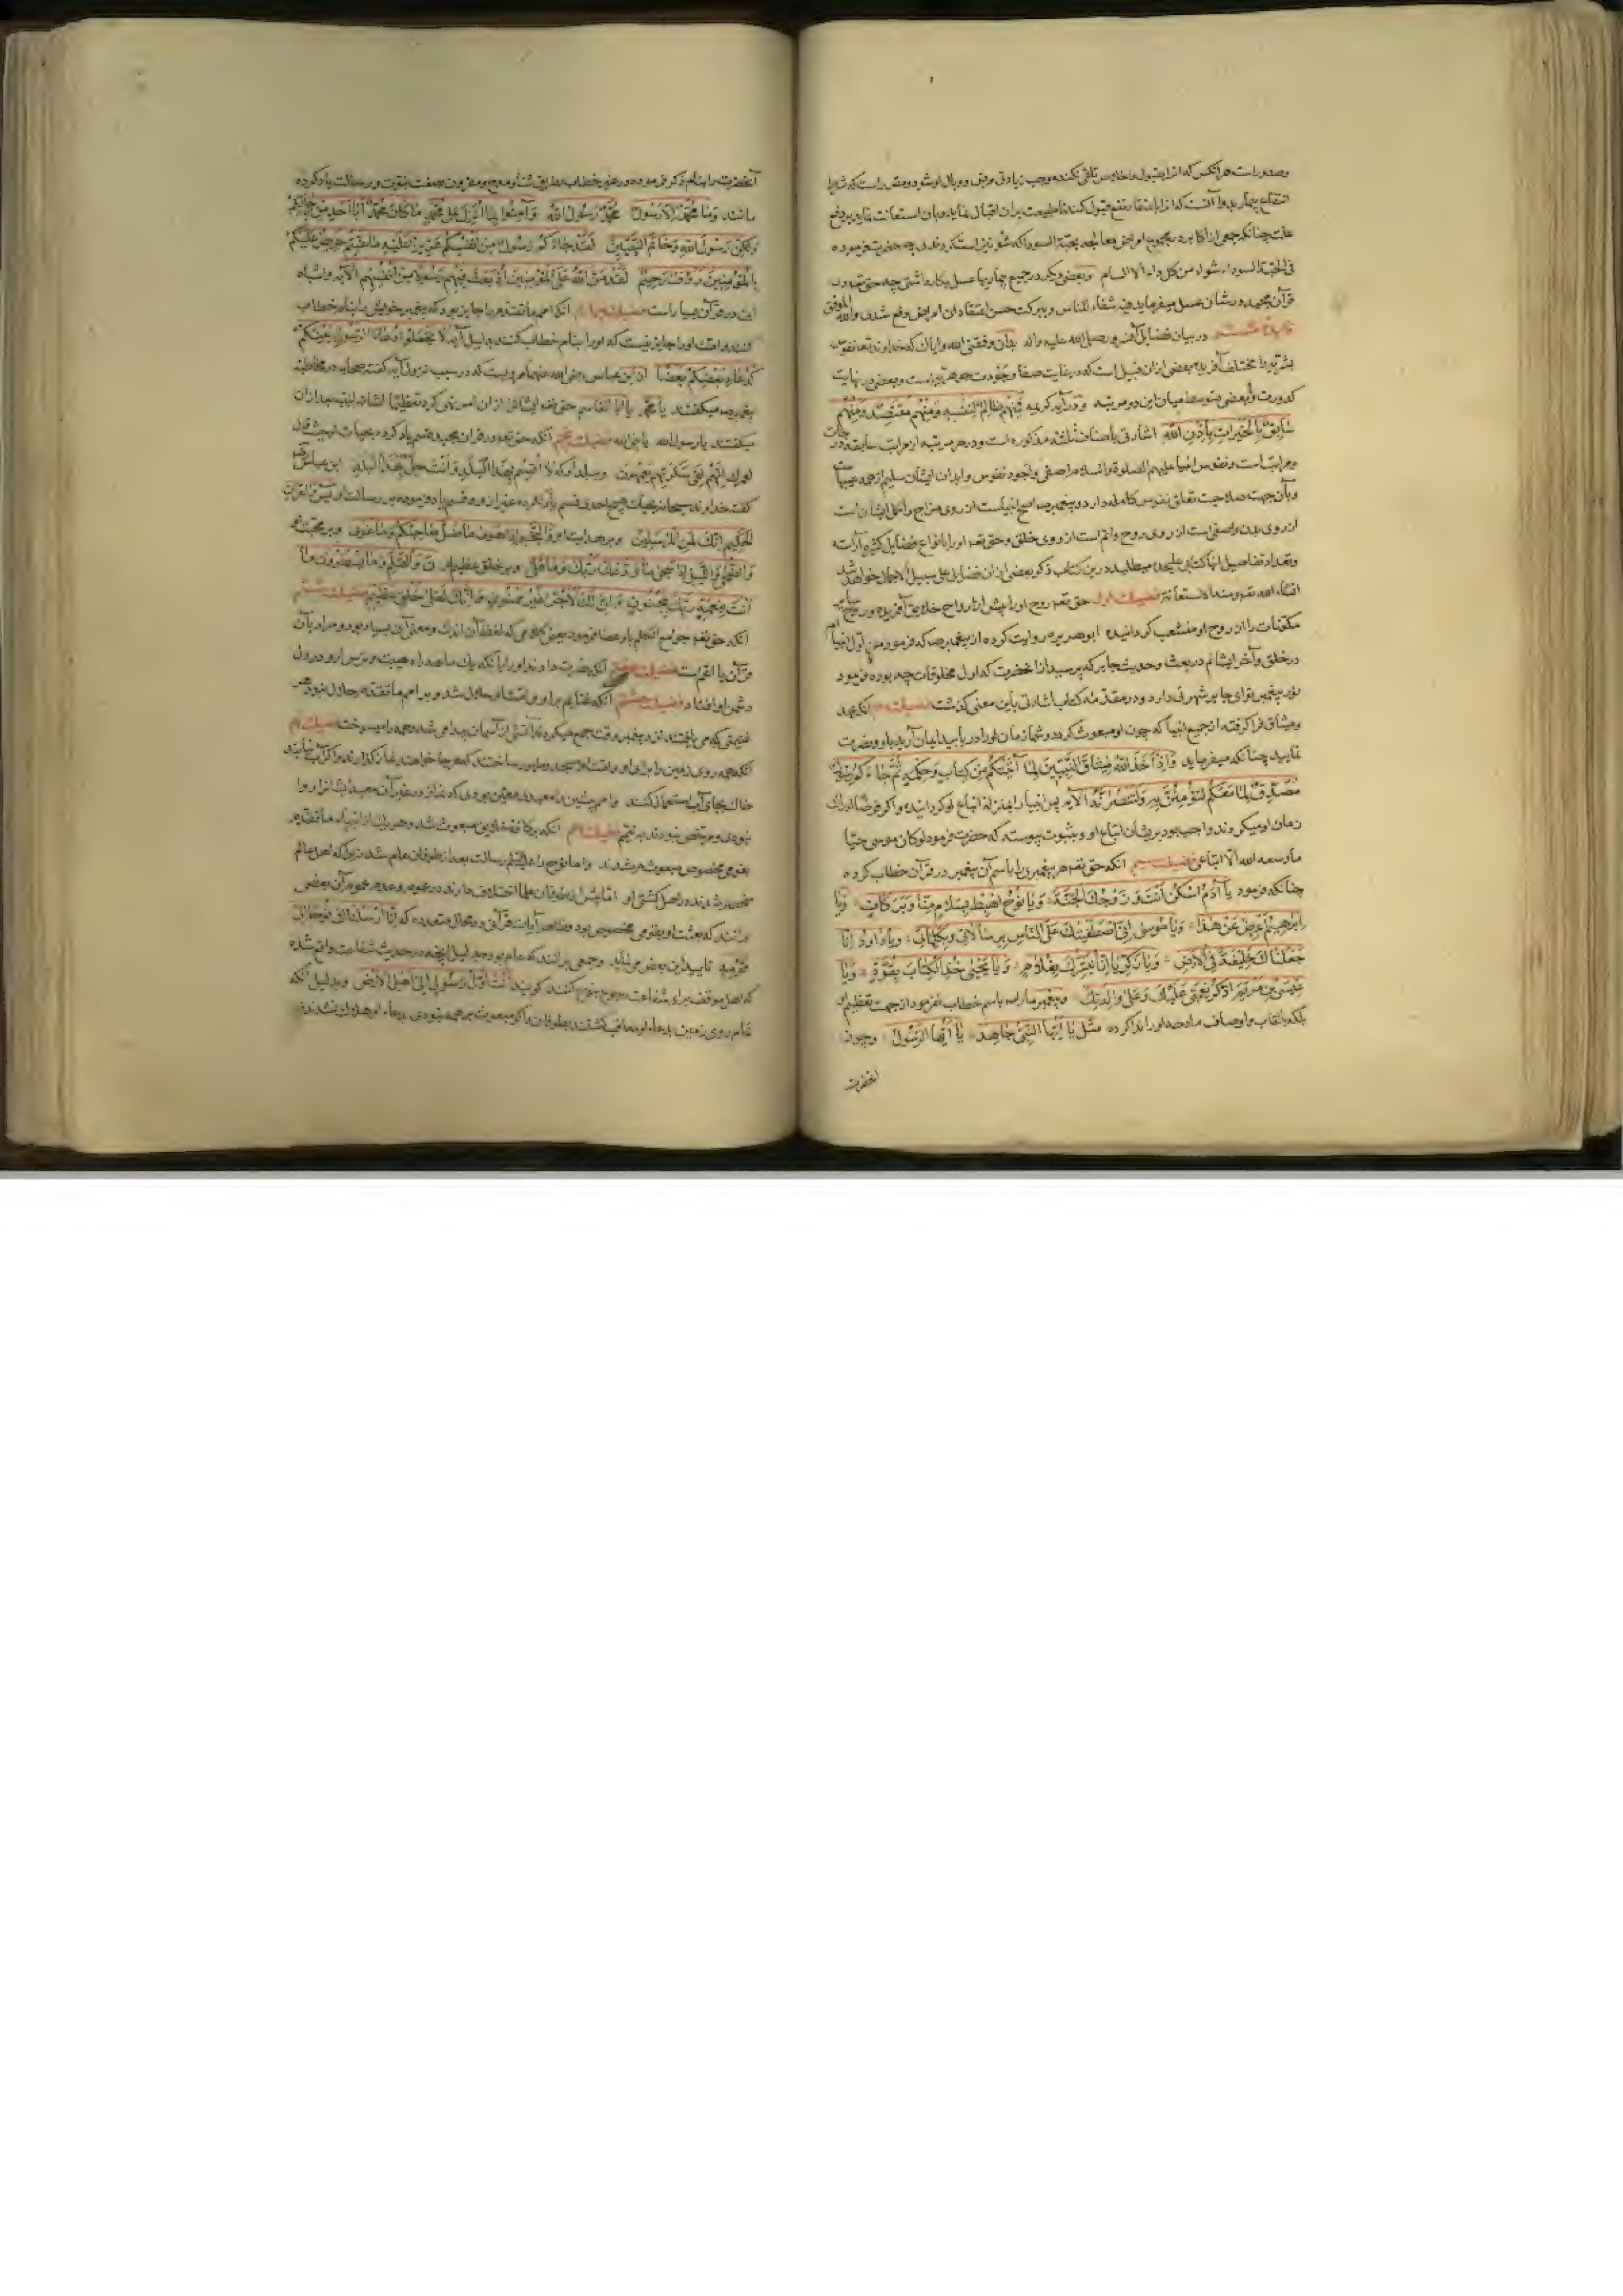 وصدور است هر آنکس که آنرا بقبول و اخلاص تلقی نکند موجب زیادتی مرض و وبال او شود و مقرر است که شرط
انتفاع بیمار بدوا آنست که آنرا باعتقاد نفع قبول کند تا طبیعت بران اقبال نماید و بان استعانت نماید بر دفع
علت چنانکه جمعی از اکابر در مجموع امراض معالجه بحبة السودا که شونیز است کردندی چه حضرت فرموده
فی الحبة السوداء شفاء من کل داء الا السام وبعضی دیگر در جمیع بیماریها عسل بکار داشتی چه حق تعه در
قرآن مجید در شان عسل میفرماید فیه شفاء للناس و ببرکت حسن اعتقاد ان امراض دفع شدی والله الموفق
در بیان فضایل آنسرور صلی الله علیه واله بدان وفقنی الله وایاک که خداوند تعه نفوس
بشریه را مختلف آفریده بعضی ازان قبیل است که در غایت صفا و جودت جوهر است و بعضی در نهایت
کدورت و بعضی متوسط میان این دو مرتبه و در آیه کریمه فمنهم ظالم لنفسه ومنهم مقتصد ومنهم
سابق بالخیرات باذن الله اشارتی باصناف ثلثه مذکوره است و در هر مرتبه از مراتب سابقه درجات
و مراتب است و نفوس انبیا علیهم الصلوة والسلام اصفی و اجود نفوس و ابدان ایشان سلیم از همه عیبها
و بان جهت صلاحیت تعلق نفوس کامله دارد و پیغمبر ما صم اصلح انبیاست از روی مزاج و اکمل ایشان است
از روی بدن و اصفی است از روی روح و اتم است از روی خلق و حق تعه او را بانواع فضایل کثیره آراسته
و تعداد تفاصیل انها کتابی علیحده میطلبد درین کتاب ذکر بعضی ازان فضایل علی سبیل الاجمال خواهد شد
انشاء الله تعه و منه الاستعانة فضیلت اول حق تعه روح او را پیش از ارواح خلایق آفریده و روح
مکونات را از روح او منشعب گردانیده ابو هریره روایت کرده از پیغمبر صم که فرمود من اول انبیا ام
در خلق و آخر ایشانم در بعث و حدیث جابر که پرسید از آنحضرت که اول مخلوقات چه بوده فرمود
نور پیغمبر تو ای جابر شهرتی دارد و در مقدمه کتاب اشارتی باین معنی گذشت فضیلت دوم آنکه عهد
و میثاق فرا گرفته از جمیع انبیا که چون او مبعوث گردد و شما زمان او را دریابید ایمان آرید باو و نصرت
نمایید چنانکه میفرماید وَاِذْ اَخَذَ اللّٰهُ مِیثَاقَ النَّبِیِّینَ لَمَا آتَیْتُکُمْ مِنْ کِتَابٍ وَحِکْمَةٍ ثُمَّ جَاءَکُمْ رَسُولٌ
مُصَدِّقٌ لِمَا مَعَکُمْ لَتُؤْمِنُنَّ بِهِ وَلَتَنْصُرُنَّهُ الآیه پس انبیا را بمنزله اتباع او گردانیده و اگر فرضا ادراک
زمان او میکردند واجب بود بریشان اتباع او و بثبوت پیوسته که حضرت فرمود لو کان موسی حیا
ما وسعه الا اتباعی فضیلت سیم آنکه حق تعه هر پیغمبری را باسم آن پیغمبر در قرآن خطاب کرده
چنانکه فرمود یَا آدَمُ اسْکُنْ اَنْتَ وَزَوْجُکَ الْجَنَّةَ وَیَا نُوحُ اهْبِطْ بِسَلَامٍ مِنَّا وَبَرَکَاتٍ وَیَا
اِبْرٰهِیمُ اَعْرِضْ عَنْ هٰذَا وَیَا مُوسٰی اِنِّی اصْطَفَیْتُکَ عَلَی النَّاسِ بِرِسَالَاتِی وَبِکَلَامِی وَیَا دَاوُدُ اِنَّا
جَعَلْنَاکَ خَلِیفَةً فِی الْاَرْضِ وَیَا زَکَرِیَّا اِنَّا نُبَشِّرُکَ بِغُلَامٍ وَیَا یَحْیٰی خُذِ الْکِتَابَ بِقُوَّةٍ وَیَا
عِیسَی بْنَ مَرْیَمَ اذْکُرْ نِعْمَتِی عَلَیْکَ وَعَلٰی وَالِدَتِکَ و پیغمبر ما را صم باسم خطاب نفرمود از جهت تعظیم او
بلکه بالقاب و اوصاف مادحه او را ندا کرده مثل یَا اَیُّهَا النَّبِیُّ جَاهِدْ یَا اَیُّهَا الرَّسُولُ وچون
آنحضرت
آنحضرت را بنام ذکر فرموده در غیر خطاب بطریق ثنا و مدح و مقرون بصفت نبوت و رسالت یاد کرده
مانند وَمَا مُحَمَّدٌ اِلَّا رَسُولٌ مُحَمَّدٌ رَسُولُ اللّٰهِ وَآمَنُوا بِمَا نُزِّلَ عَلٰی مُحَمَّدٍ مَا کَانَ مُحَمَّدٌ اَبَا اَحَدٍ مِنْ رِجَالِکُمْ
وَلٰکِنْ رَسُولَ اللّٰهِ وَخَاتَمَ النَّبِیِّینَ لَقَدْ جَاءَکُمْ رَسُولٌ مِنْ اَنْفُسِکُمْ عَزِیزٌ عَلَیْهِ مَا عَنِتُّمْ حَرِیصٌ عَلَیْکُمْ
بِالْمُؤْمِنِینَ رَؤُفٌ رَحِیمٌ لَقَدْ مَنَّ اللّٰهُ عَلَی الْمُؤْمِنِینَ اِذْ بَعَثَ فِیهِمْ رَسُولًا مِنْ اَنْفُسِهِمْ الآیه و اشباه
این در قرآن بسیار است فضیلت چهارم آنکه امم ما تقدم را جایز بود که پیغمبر خویش را بنام خطاب
کنند و امت او را جایز نیست که او را بنام خطاب کنند بدلیل آیه لَا تَجْعَلُوا دُعَاءَ الرَّسُولِ بَیْنَکُمْ
کَدُعَاءِ بَعْضِکُمْ بَعْضًا از ابن عباس رضی الله عنهما مرویست که در سبب نزول آیه گفته صحابه در مخاطبه
پیغمبر صم میگفتند یا محمد یا ابا القاسم حق تعه ایشانرا ازان امر نهی کرد تعظیما لشانه لیس بعد ازان
میگفتند یا رسول الله یا نبی الله فضیلت پنجم آنکه حق تعه در قرآن مجید قسم یاد کرده بحیات او حیث قال
لَعَمْرُکَ اِنَّهُمْ لَفِی سَکْرَتِهِمْ یَعْمَهُونَ و ببلد او که لَا اُقْسِمُ بِهٰذَا الْبَلَدِ وَاَنْتَ حِلٌّ بِهٰذَا الْبَلَدِ ابن عباس
گفت خداوند سبحانه بحیات هیچ احدی قسم یاد نکرده غیر ازو و قسم یاد فرموده بر رسالت او یٰس وَالْقُرْآنِ
الْحَکِیمِ اِنَّکَ لَمِنَ الْمُرْسَلِینَ و بر هدایت او وَالنَّجْمِ اِذَا هَوٰی مَا ضَلَّ صَاحِبُکُمْ وَمَا غَوٰی و بر محبت او
وَالضُّحٰی وَاللَّیْلِ اِذَا سَجٰی مَا وَدَّعَکَ رَبُّکَ وَمَا قَلٰی و بر خلق عظیم او نٓ وَالْقَلَمِ وَمَا یَسْطُرُونَ مَا
اَنْتَ بِنِعْمَةِ رَبِّکَ بِمَجْنُونٍ وَاِنَّ لَکَ لَاَجْرًا غَیْرَ مَمْنُونٍ وَاِنَّکَ لَعَلٰی خُلُقٍ عَظِیمٍ فضیلت ششم
آنکه حق تعه جوامع الکلم باو عطا فرمود یعنی کلامی که لفظ آن اندک و معنی آن بسیار بود و مراد بآن
قرآن یا اعم است فضیلت هفتم آنکه نصرت دادند او را بآنکه یک ماهه راه هیبت و ترس او در دل
دشمن او افتاد فضیلت هشتم آنکه غنایم بر او و امتش او حلال شد و بر امم ما تقدم حلال نبود هر
غنیمتی که می یافتند نزد پیغمبر وقت جمع میکردند آتشی از آسمان پیدا می شد و همه را میسوخت فضیلت نهم
آنکه همه روی زمین را برای او و امت او مسجد و طهور ساختند که هر جا خواهند نماز گذارند و اگر آب نیابند
خاک بجای آب استعمال کنند و امم پیشین را معبدی معین بودی که نماز در غیر آن معبد ایشانرا روا
نبودی و مرخص نبودند بتیمم فضیلت دهم آنکه بر کافه خلایق مبعوث شد و هر یک از انبیاء ما تقدم
بقومی مخصوص مبعوث می شدند و اما نوح را علیه السلام رسالت بعد از طوفان عام شد زیرا که اهل عالم
منحصر شدند در اهل کشتی او اما پیش از طوفان علما اختلاف دارند در عموم و عدم عموم آن بعضی
برآنند که بعثت او بقومی مخصوص بود و ظاهر آیات قرآنی در محال متعدده که اِنَّا اَرْسَلْنَا نُوحًا اِلٰی
قَوْمِهِ تایید این بعض می نماید و جمعی برآنند که عام بود بدلیل آنچه در حدیث شفاعت واقع شده
که اهل موقف برای شفاعت رجوع بنوح کنند گویند اَنْتَ اَوَّلُ رَسُولٍ اِلٰی اَهْلِ الْاَرْضِ و بدلیل آنکه
تمام روی زمین بدعاء او معاقب گشتند بطوفان و اگر مبعوث بر همه نبودی بدعاء او هلاک نشدندی